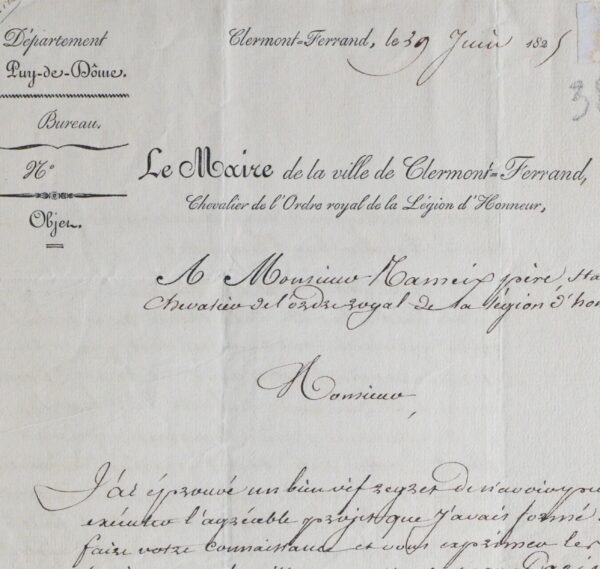 Département
Puy-de-Dôme.
Bureau.
No
Objet.
Clermont-Ferrand, le 29 Juin 1825
Le Maire de la ville de Clermont=Ferrand,
Chevalier de l'Ordre royal de la Légion d'Honneur,
A Monsieur père
Chevalier de l'ordre royal de la légion d'hon
Monsieur,
J'ai éprouvé un bien vif regret de n'avoir pu
exécuter l'agréable projet que j'avais formé
faire votre connaissance et vous exprimer